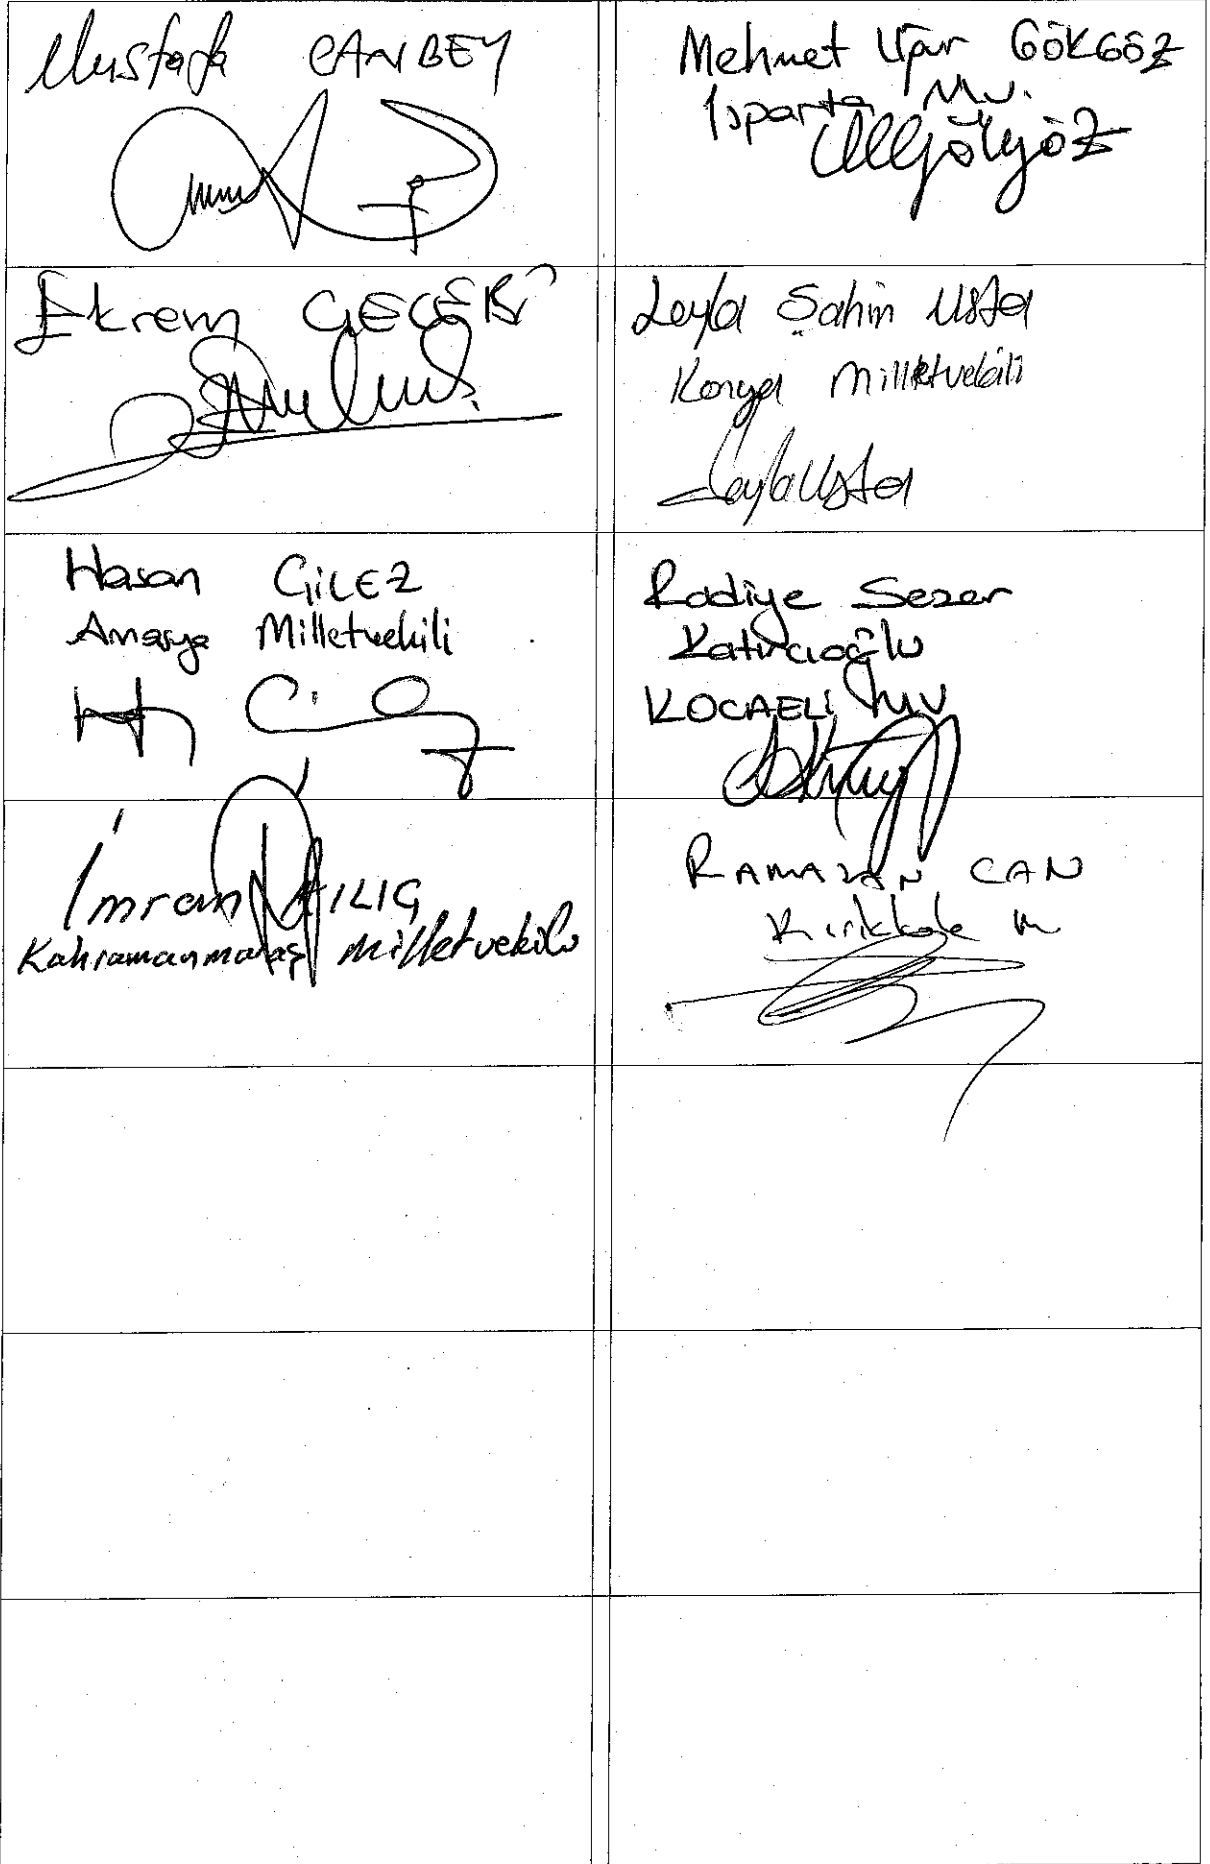 Mustafa CANBEY
Mehmet Uğur GÖKGÖZ
Isparta Mv.
MUGökgöz
Ekrem ÇELEBİ
Leyla Şahin Usta
Konya Milletvekili
Leyla Usta
Hasan ÇİLEZ
Amasya Milletvekili
Radiye Sezer
Katırcıoğlu
KOCAELİ MV
İmran KILIÇ
Kahramanmaraş Milletvekili
RAMAZAN CAN
Kırıkkale M